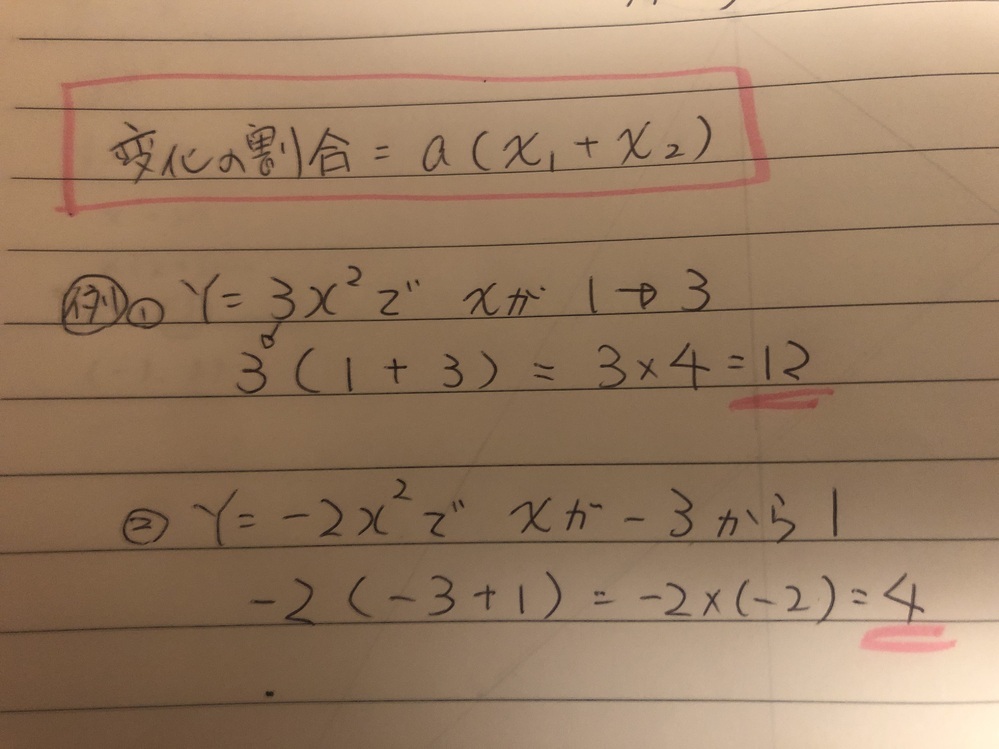 変化の割合 = a(x₁ + x₂)
例① Y = 3x² で xが 1 → 3
a
3(1 + 3) = 3×4 = 12
② Y = -2x² で xが -3から1
-2(-3+1) = -2×(-2) = 4